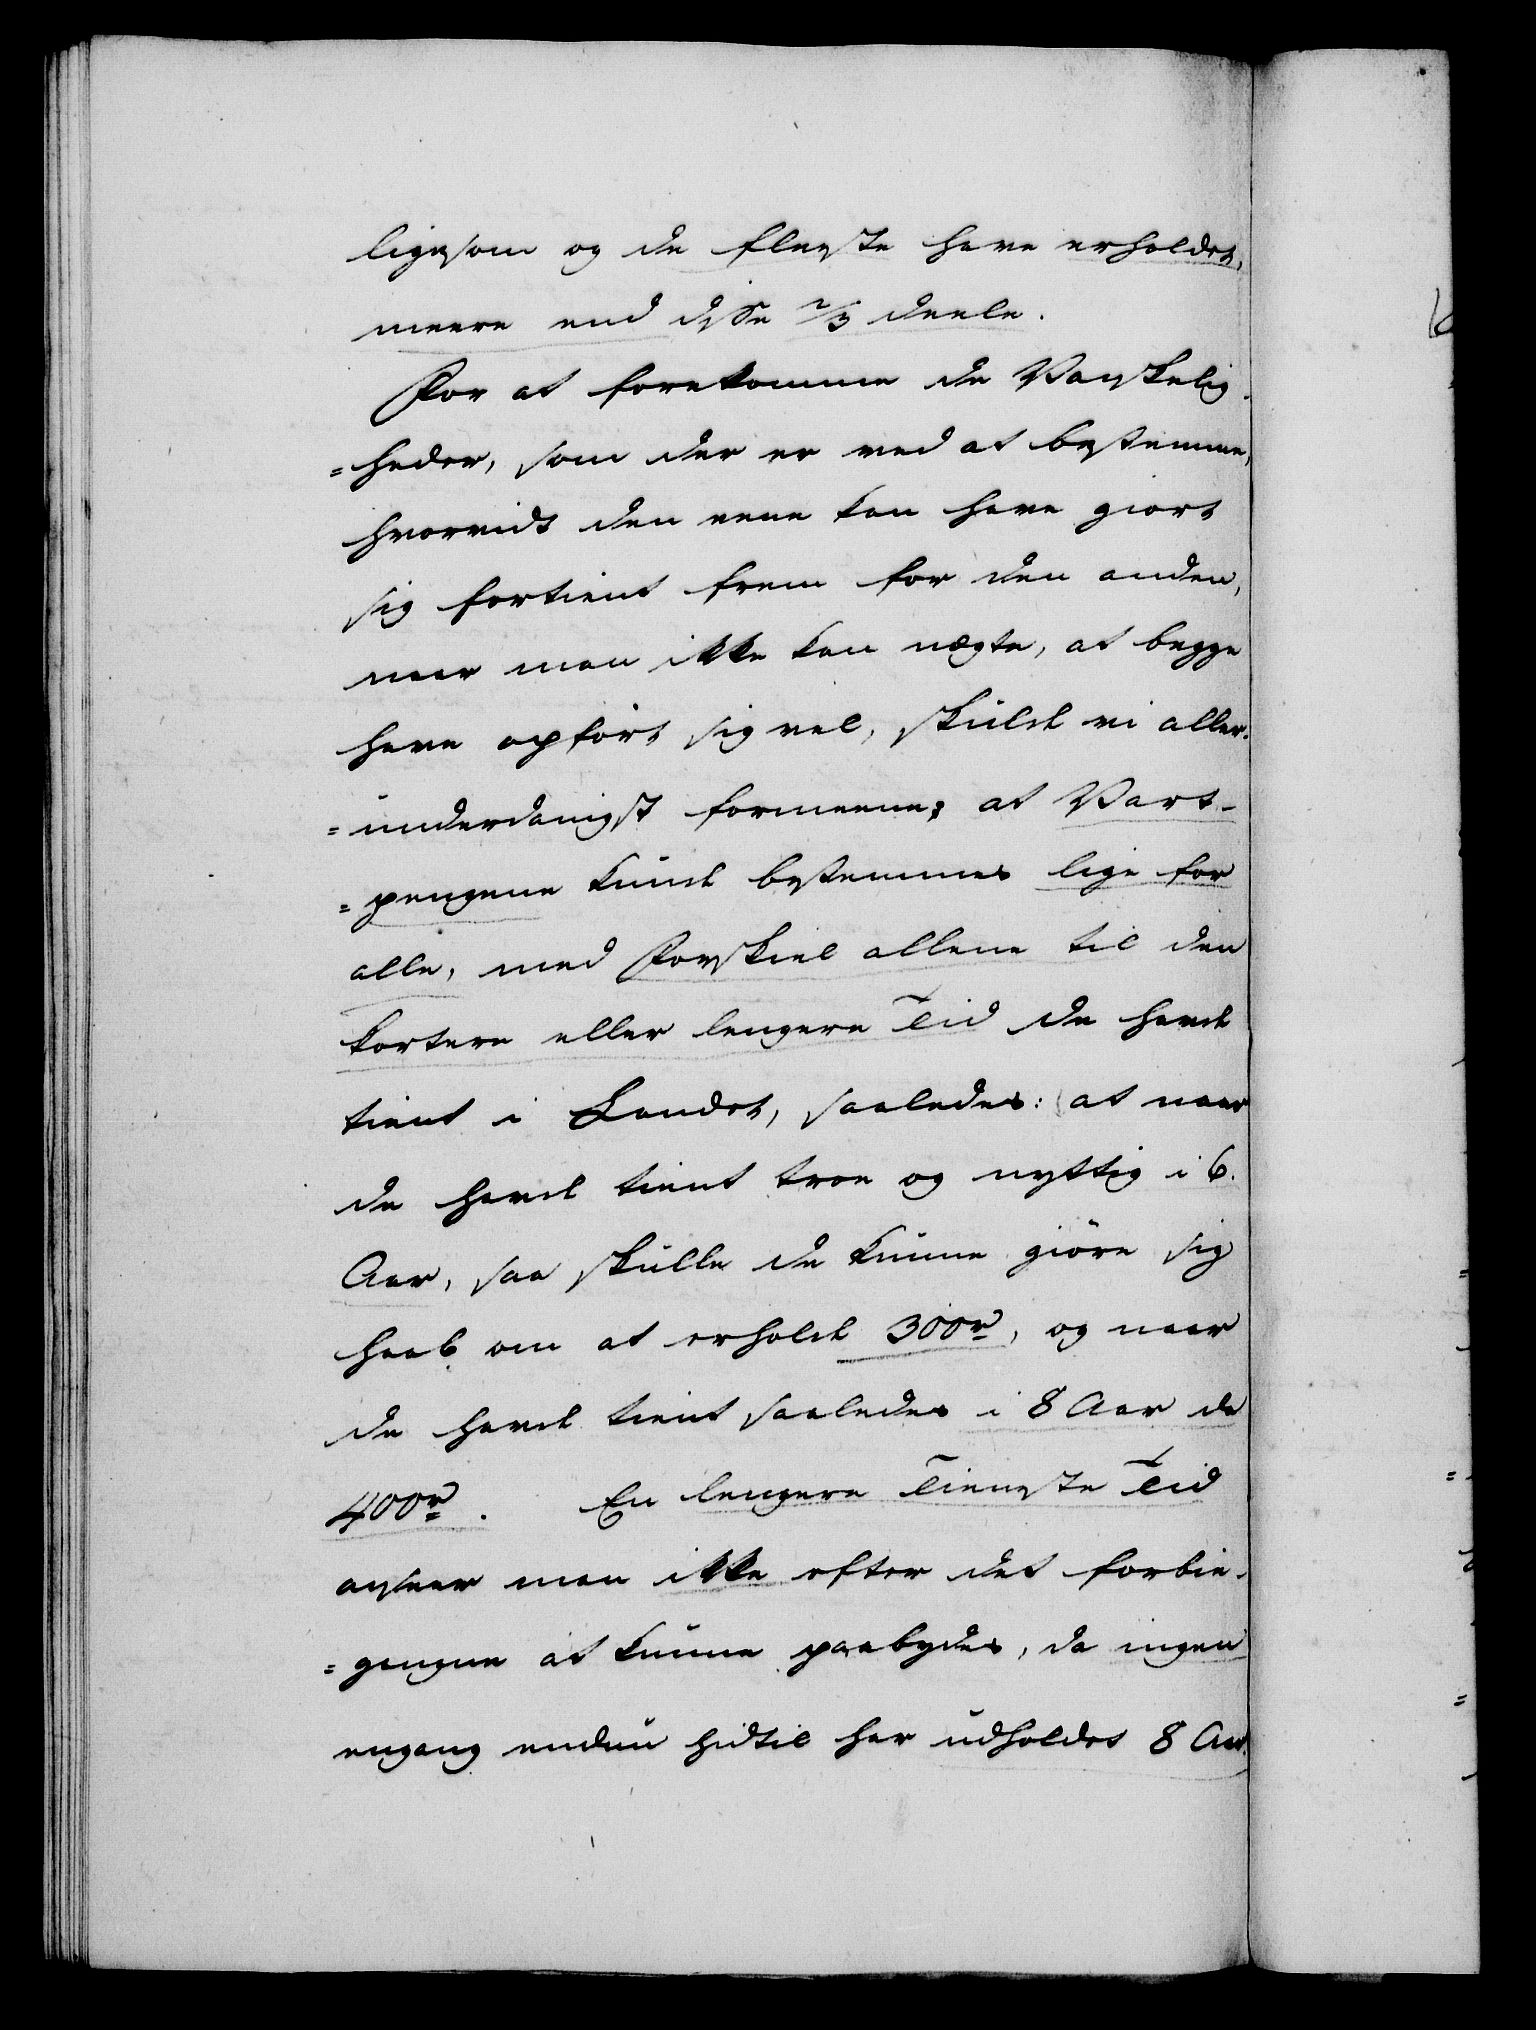 ligesom og de fleste have erholdet,
meere end disse 2/3 deele.
For at forekomme de Vanskelig-
=heder, som der er ved at bestemme,
hvorvidt den eene kan have giort
sig fortient frem for den anden,
naar man ikke kan nægte, at begge
have opført sig vel, skulde vi aller-
=underdanigst formeene; at Vart-
=pengene kunde bestemmes lige for
alle, med Forskiel allene til den
kortere eller lengere Tid de havde
tient i Landet, saaledes: at naar
de havde tient troe og nyttig i 6.
Aar, saa skulle de kunne giøre sig
haab om at erholde 300r, og naar
de havde tient saaledes i 8 Aar da
400r. En lengere Tieneste Tid
anseer man ikke efter det forbie-
=gangne at kunne paabydes, da ingen
engang endnu hidtil har udholdet 8 Aar.